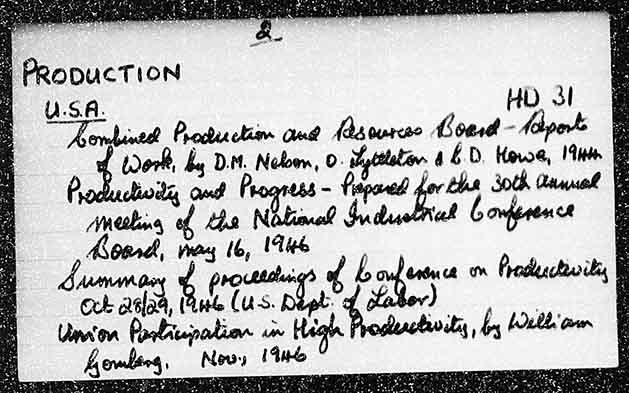 2
PRODUCTION
U.S.A.
HD 31
Combined Production and Resources Board - Report
of Work, by D.M. Nelson, O. Lyttelton & C.D. Howe, 1944
Productivity and Progress - Prepared for the 30th annual
meeting of the National Industrial Conference
Board, may 16, 1946
Summary of proceedings of Conference on Productivity
Oct 28/29, 1946 (U.S. Dept. of Labor)
Union Participation in High Productivity, by William
Gomberg, Nov., 1946